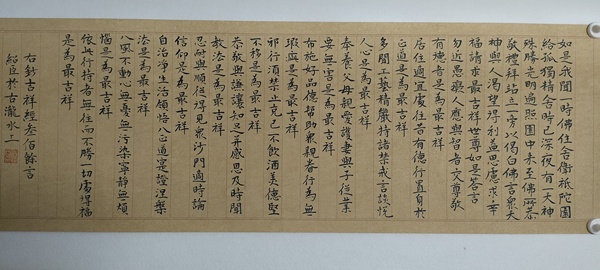 如是我聞一時佛住舍衛祇陀園
給孤獨精舍時已深夜有一大神
殊勝光明遍照園中來至佛所恭
敬禮拜站立一旁以偈白佛言眾天
神與人渴望得利益思慮求幸
福請求最吉祥世尊如是答言
勿近愚癡人應與智者交尊敬
有德者是為最吉祥
居住適宜處往昔有德行置身於
正道是為最吉祥
多聞工藝精嚴持諸禁戒言談悅
人心是為最吉祥
奉養父母親愛護妻與子從業
要無害是為最吉祥
布施好品德幫助眾親眷行為無
瑕疵是為最吉祥
邪行須禁止克己不飲酒美德堅
不移是為最吉祥
恭敬與謙讓知足并感恩及時聞
教法是為最吉祥
忍耐與順從得見眾沙門適時論
信仰是為最吉祥
自治淨生活領悟八正道寔證涅槃
法是為最吉祥
八風不動心無憂無污染寧靜無煩
惱是為最吉祥
依此行持者無往而不勝一切處得福
是為最吉祥
右鈔吉祥經叁佰餘言
紹臣於古瀧水上